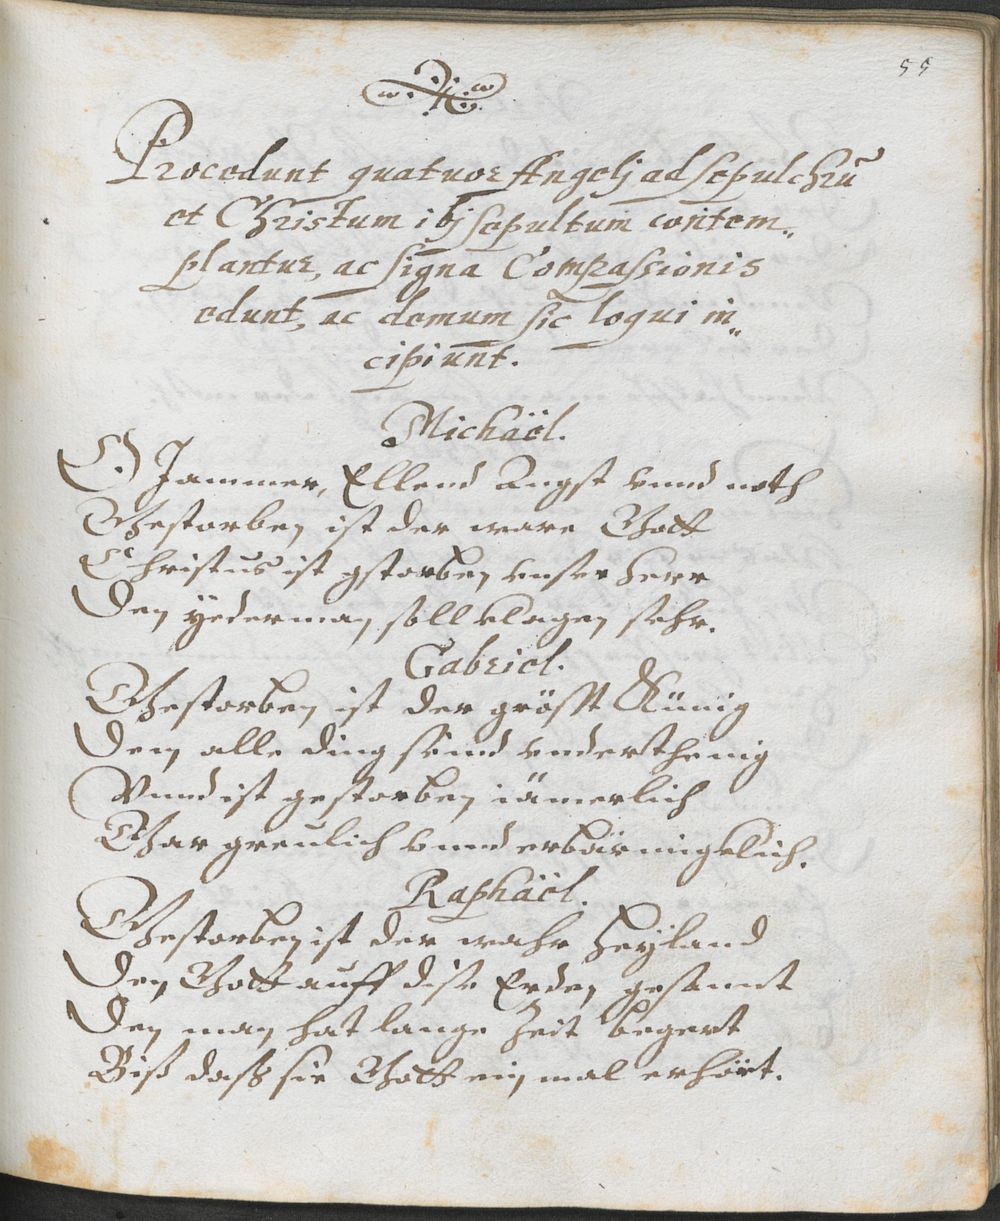 55
Procedunt quatuor Angelj ad sepulchrū
et Christum ibj sepultum contem„
plantur, ac signa Compassionis
edunt, ac demum sic loqui in„
cipiunt.
Michaël.
O Jammer, Ellend Angst vnnd noth
Gestorben ist der ware Gott
Christus ist gstorben vnser Herr
Den yederman soll klagen sehr.
Gabriel.
Gestorben ist der gröst Künig
Dem alle ding seind vnderthenig
Vnnd ist gestorben iämerlich
Gar greulich vnnd erbärmigklich.
Raphaël.
Gestorben ist der wahr Heyland
Den Gott auff dise Erden gesannt
Den man hat lange Zeit begert
Biß dass sie Gott ein mal erhört.